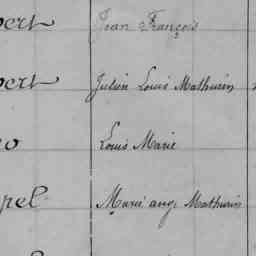 pert Jean François
pert Julien Louis Mathurin
o Louis Marie
pel Marie ang. Mathurin